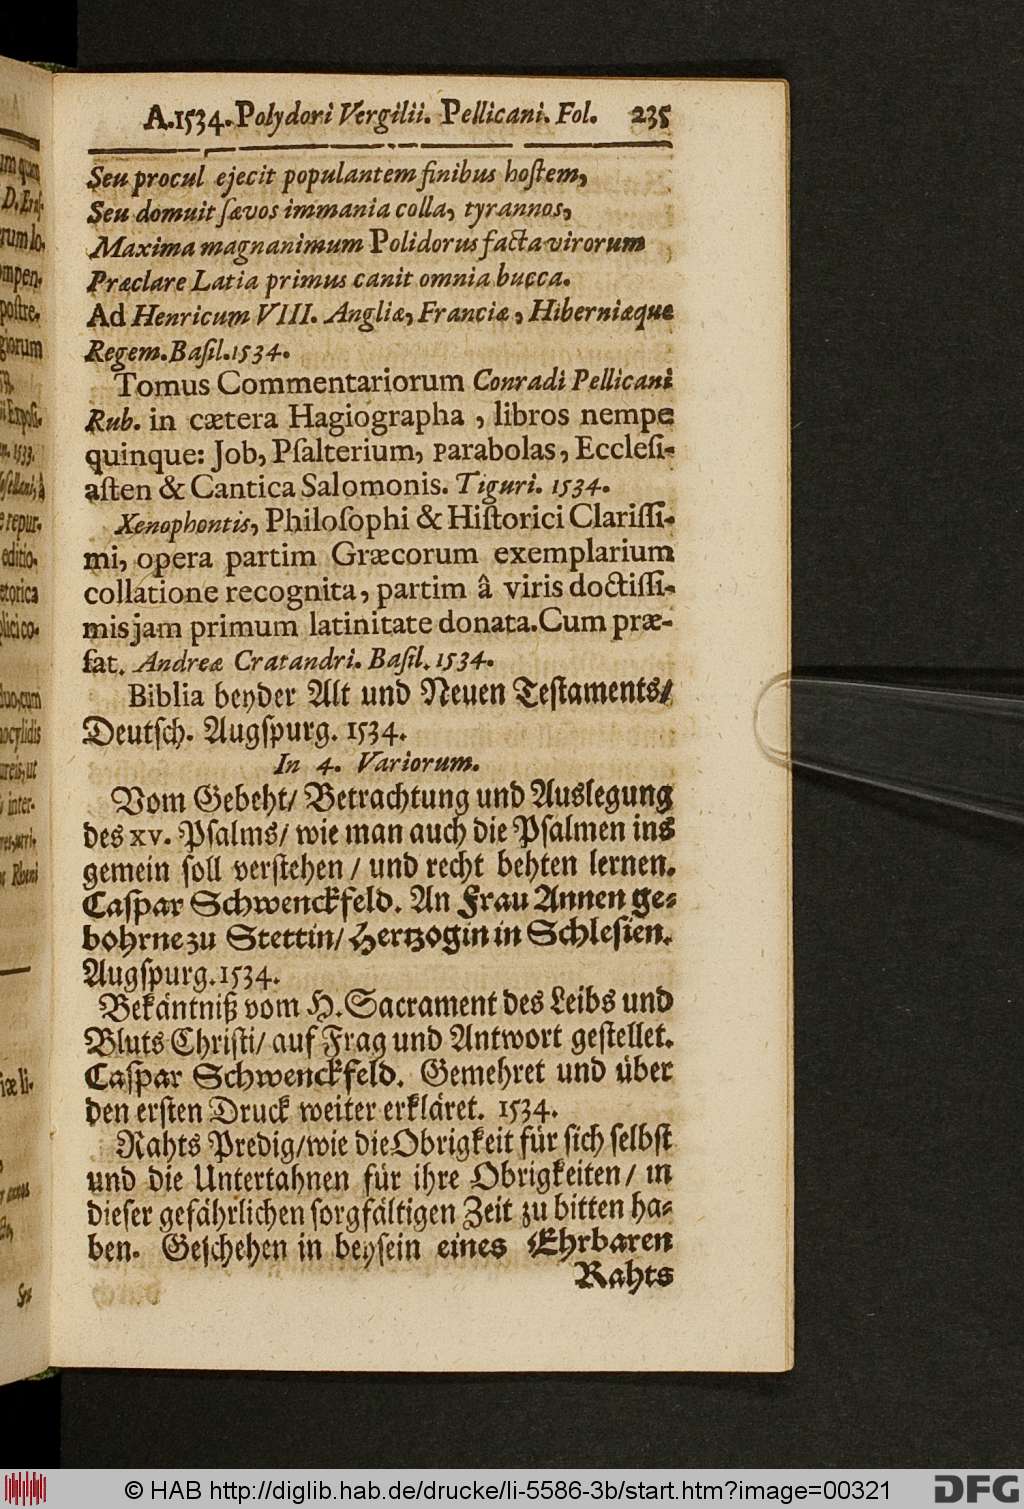 A. 1534. Polydori Vergilii. Pellicani. Fol. 235
Seu procul ejecit populantem finibus hoſtem,
Seu domuit ſævos immania colla, tyrannos,
Maxima magnanimum Polidorus facta virorum
Præclare Latia primus canit omnia bucca.
Ad Henricum VIII. Angliæ, Franciæ, Hiberniæque
Regem. Baſil. 1534.
Tomus Commentariorum Conradi Pellicani
Rub. in cætera Hagiographa, libros nempe
quinque: Job, Pſalterium, parabolas, Eccleſi-
aſten & Cantica Salomonis. Tiguri. 1534.
Xenophontis, Philoſophi & Hiſtorici Clariſſi-
mi, opera partim Græcorum exemplarium
collatione recognita, partim â viris doctiſſi-
mis jam primum latinitate donata. Cum præ-
fat. Andreæ Cratandri. Baſil. 1534.
Biblia beyder Alt und Neuen Teſtaments/
Deutſch. Augſpurg. 1534.
In 4. Variorum.
Vom Gebeht/ Betrachtung und Auslegung
des XV. Pſalms/ wie man auch die Pſalmen ins
gemein ſoll verſtehen/ und recht behten lernen.
Caſpar Schwenckfeld. An Frau Annen ge-
bohrne zu Stettin/ Hertzogin in Schleſien.
Augſpurg. 1534.
Bekäntniß vom H. Sacrament des Leibs und
Bluts Chriſti/ auf Frag und Antwort geſtellet.
Caſpar Schwenckfeld. Gemehret und über
den erſten Druck weiter erkläret. 1534.
Rahts Predig/ wie die Obrigkeit für ſich ſelbſt
und die Untertahnen für ihre Obrigkeiten/ in
dieſer gefährlichen ſorgfältigen Zeit zu bitten ha-
ben. Geſchehen in beyſein eines Ehrbaren
Rahts
© HAB http://diglib.hab.de/drucke/li-5586-3b/start.htm?image=00321
DFG